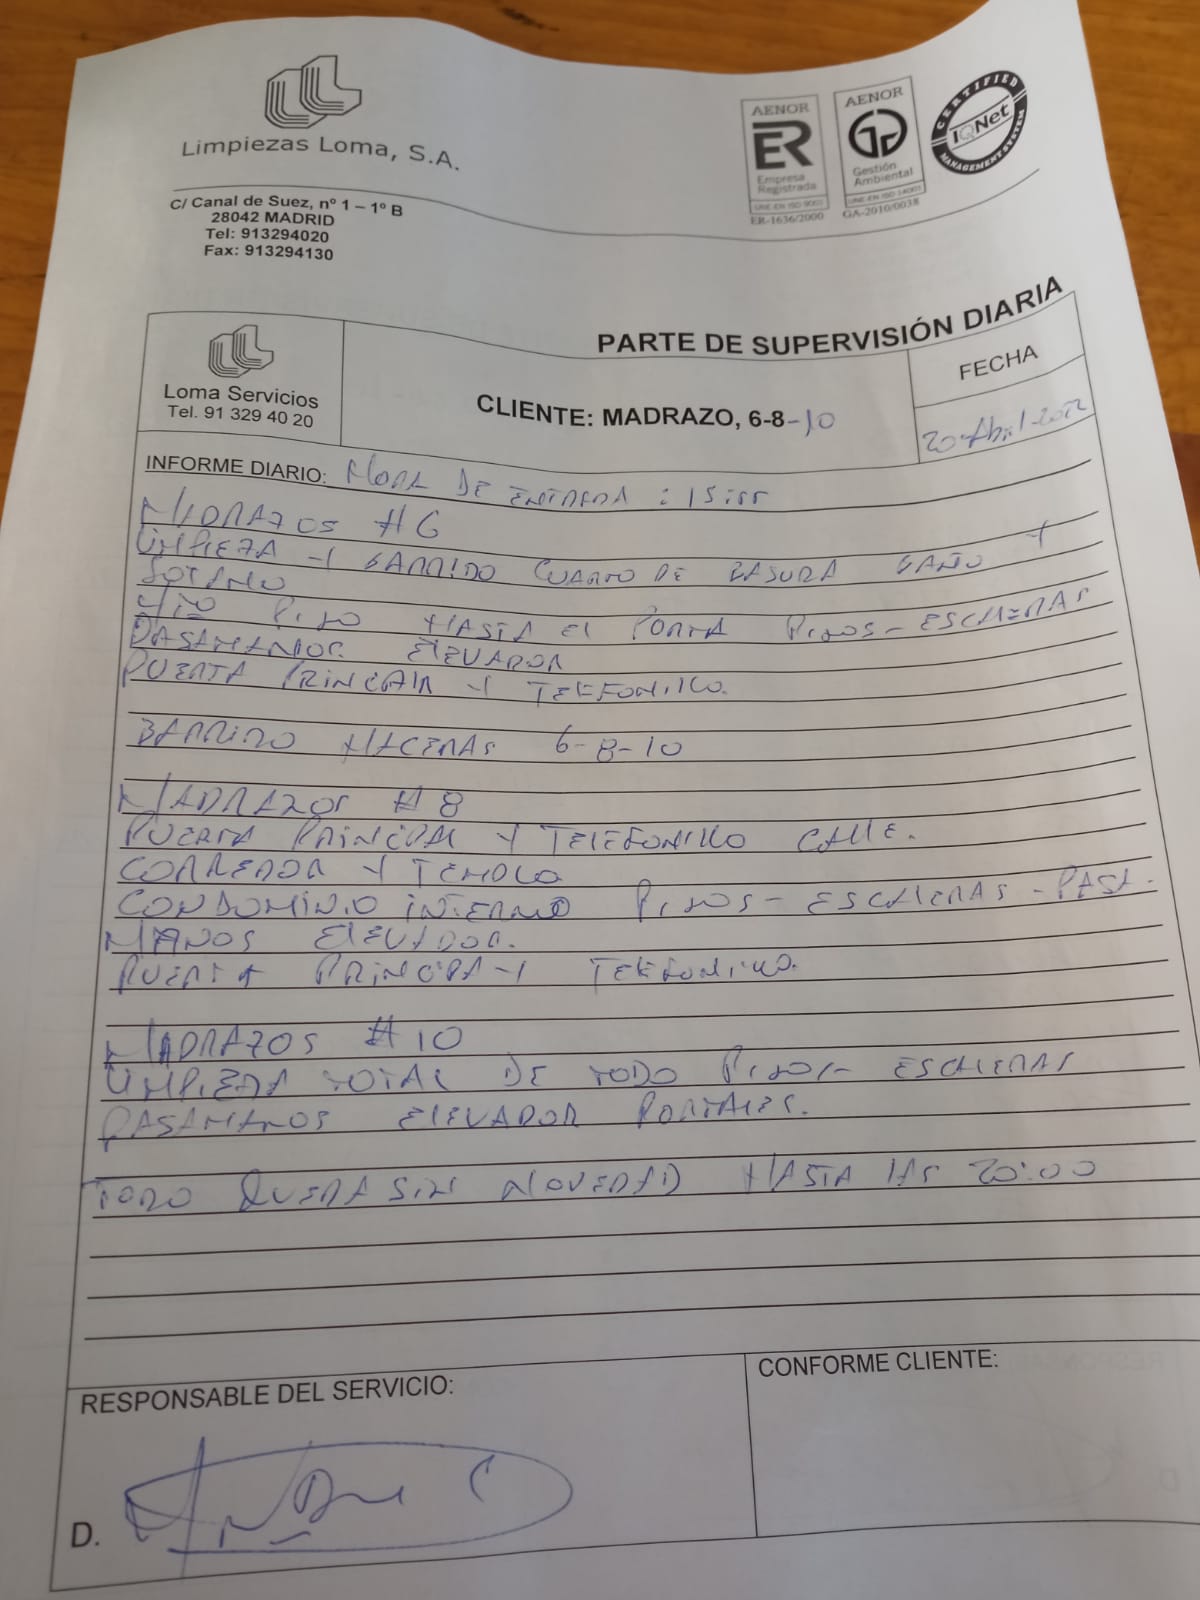 Limpiezas Loma, S.A.
C/ Canal de Suez, nº 1 – 1º B
28042 MADRID
Tel: 913294020
Fax: 913294130
AENOR
ER
Empresa
Registrada
UNE-EN ISO 9001
ER-1636/2000
AENOR
Gestión
Ambiental
UNE-EN ISO 14001
GA-2010/0038
CERTIFIED
IQNet
MANAGEMENT SYSTEM
PARTE DE SUPERVISIÓN DIARIA
Loma Servicios
Tel. 91 329 40 20
CLIENTE: MADRAZO, 6-8-10
FECHA
20-Abril-2022
INFORME DIARIO: HORA DE ENTRADA : 15:55
MADRAZOS #6
LIMPIEZA Y BARRIDO CUARTO DE BASURA BAÑO Y
SOTANO
4TO PISO HASTA EL PORTA PISOS - ESCALERAS
PASAMANOS ELEVADOR
PUERTA PRINCIPAL Y TELEFONILLO.
BARRIDO ACERAS 6-8-10
MADRAZOS #8
PUERTA PRINCIPAL Y TELEFONILLO CALLE.
CORREDOR Y
CONDOMINIO INTERNO PISOS - ESCALERAS - PASA.
MANOS ELEVADOR.
PUERTA PRINCIPA Y TELEFONILLO.
MADRAZOS #10
LIMPIEZA TOTAL DE TODO PISOS - ESCALERAS
PASAMANOS ELEVADOR PORTALES.
TODO QUEDA SIN NOVEDAD HASTA LAS 20:00
RESPONSABLE DEL SERVICIO:
CONFORME CLIENTE:
D.